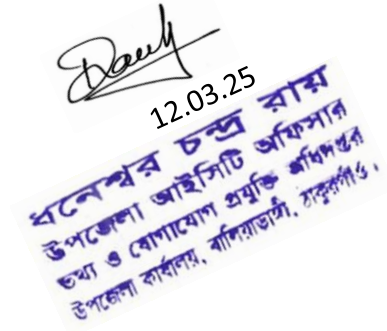 12.03.25
ধনেশ্বর চন্দ্র রায়
উপজেলা আইসিটি অফিসার
তথ্য ও যোগাযোগ প্রযুক্তি অধিদপ্তর
উপজেলা কার্যালয়, বালিয়াডাঙ্গী, ঠাকুরগাঁও।